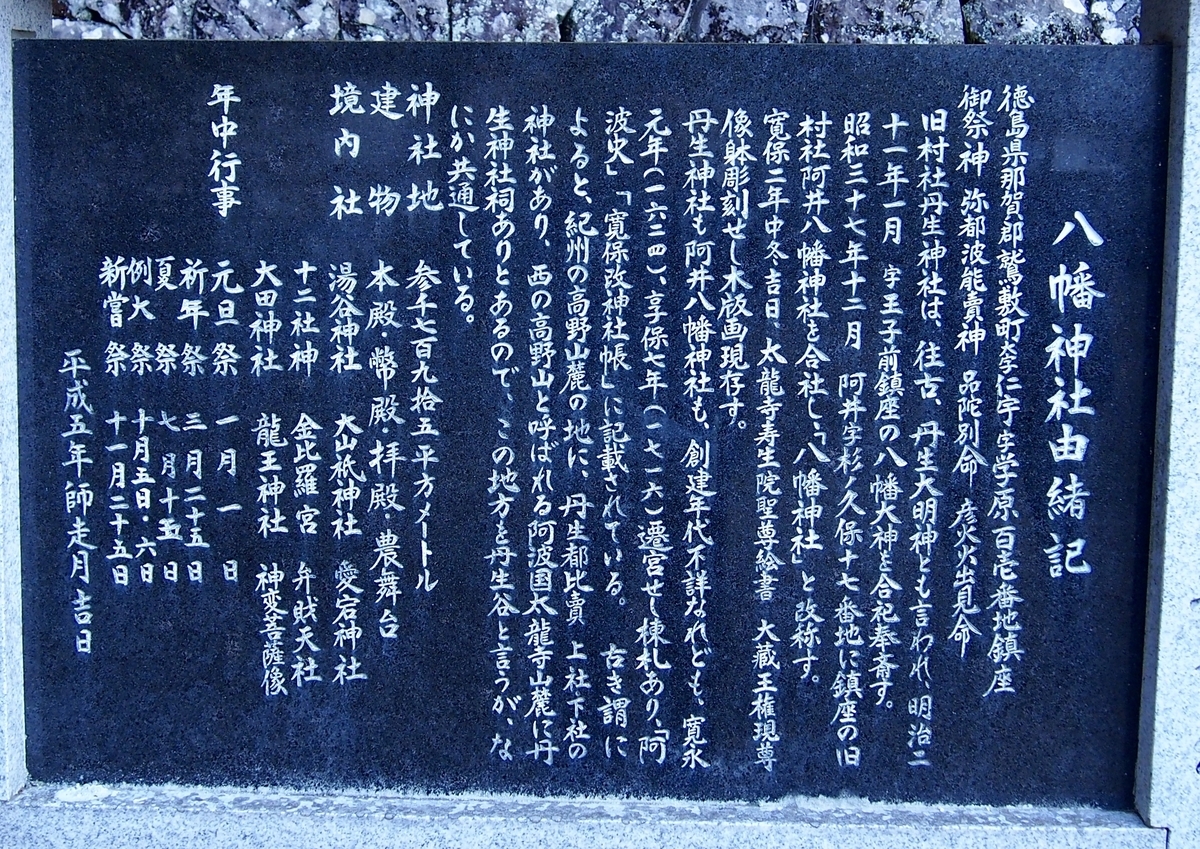 八幡神社由緒記
徳島県那賀郡鷲敷町大字仁宇字学原百壱番地鎮座
御祭神 弥都波能賣神 品陀別命 彦火火出見命
旧村社丹生神社は、往古、丹生大明神とも言われ、明治二
十一年一月 字王子前鎮座の八幡大神を合祀奉斎す。
昭和三十七年十二月 阿井字杉ノ久保十七番地に鎮座の旧
村社阿井八幡神社を合社し「八幡神社」と改称す。
寛保二年中冬吉日、太龍寺寿生院聖尊絵書 大蔵王権現尊
像躰彫刻せし木版画現存す。
丹生神社も阿井八幡神社も、創建年代不詳なれども、寛永
元年(一六二四)、享保七年(一七一六)遷宮せし棟札あり、「阿
波史」「寛保改神社帳」に記載されている。 古き謂に
よると、紀州の高野山麓の地に、丹生都比賣 上社下社の
神社があり、西の高野山と呼ばれる阿波国太龍寺山麓に丹
生神社祠ありとあるので、この地方を丹生谷と言うが、な
にか共通している。
神社地 参千七百九拾五平方メートル
建物 本殿・幣殿・拝殿・農舞台
境内社 湯谷神社 大山祇神社 愛宕神社
十二社神 金比羅宮 弁賎天社
大田神社 龍王神社 神変菩薩像
年中行事 元旦祭 一月一日
祈年祭 三月二十五日
夏祭 七月十五日
例大祭 十月五日・六日
新嘗祭 十一月二十五日
平成五年師走月吉日